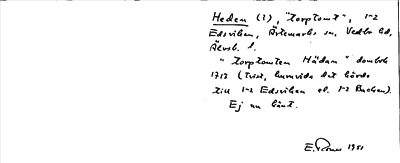 Heden (1), "torptomt", 1-2
Edsviken, Ärtemarks sn, Vedbo hd,
Älvsb. l.
"torptomten Hädan" dombok
1713 (tvist, huruvida det hörde
till 1-2 Edsviken el. 1-2 Backen).
Ej nu känt.
E. 1951